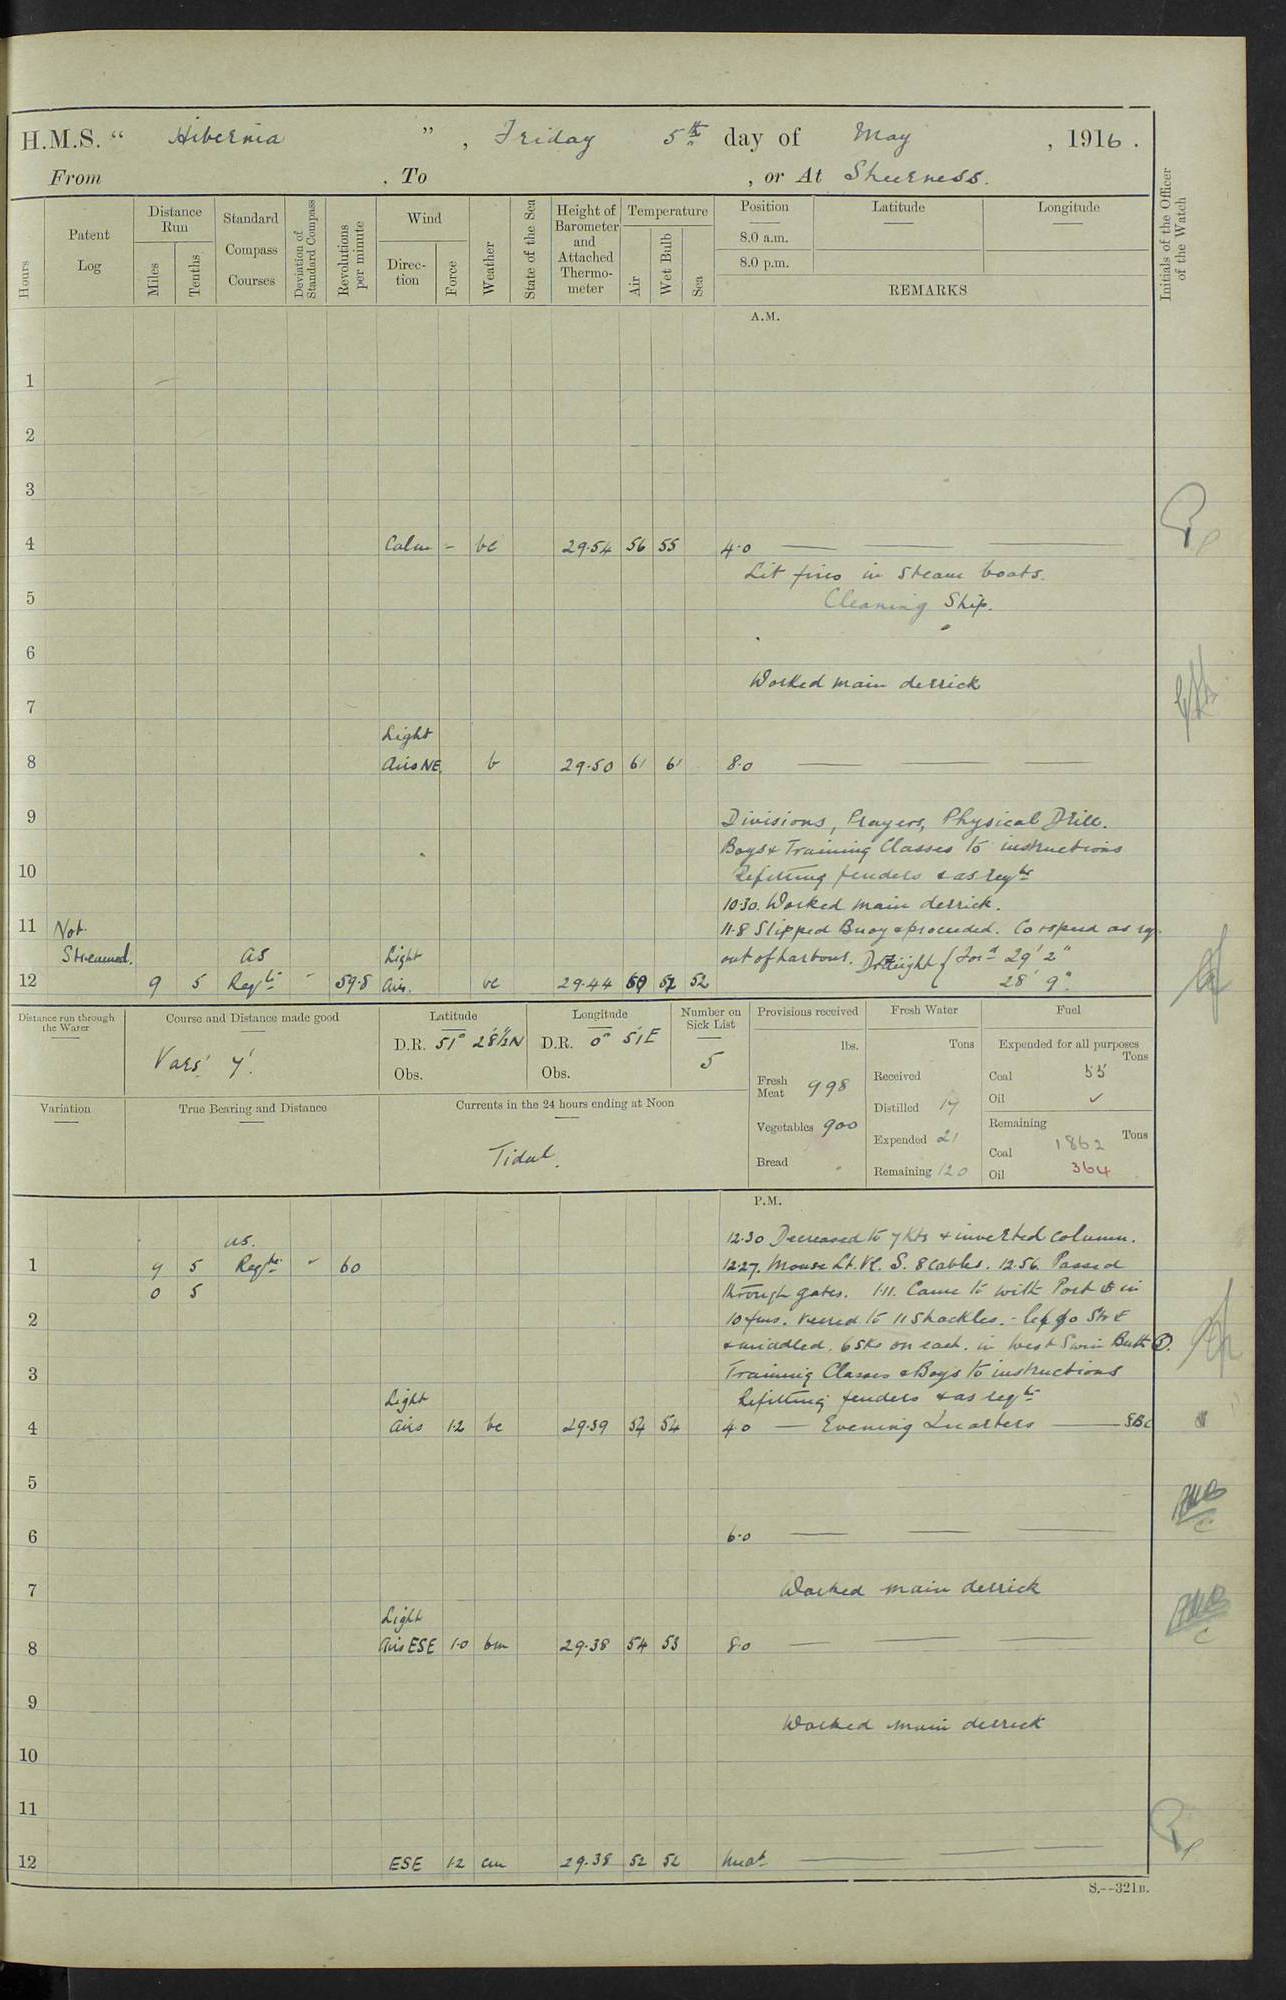 H.M.S. “ Hibernia ” , Friday 5th day of May , 1916 .
From . To , or At Sheerness.
Hours
Patent Log
Distance Run
Miles
Tenths
Standard Compass Courses
Deviation of Standard Compass
Revolutions per minute
Wind
Direc-tion
Force
Weather
State of the Sea
Height of Barometer and Attached Thermo-meter
Temperature
Air
Wet Bulb
Sea
Position
8.0 a.m.
8.0 p.m.
Latitude
Longitude
REMARKS
Initials of the Officer of the Watch
A.M.
1
2
3
4 Calm - bc 29.54 56 55 4.0
Lit fires in Steam boats.
5 Cleaning Ship.
6
Worked main derrick
7
Light
8 Airs NE. b 29.50 61 61 8.0
9 Divisions, Prayers, Physical Drill.
Boys & Training Classes to instructions
10 Refitting fenders & as reqte
10.30. Worked main derrick.
11 Not 11.8 Slipped Buoy & proceeded. Co & speed as rq.
Streamed. as Light out of harbour. Draught { Ford 29' 2"
12 9 5 Reqte " 59.8 Airs. bc 29.44 52 52 28' 9"
Distance run through the Water
Course and Distance made good
Vars' 7'.
Latitude
D.R. 51° 28½'N
Obs.
Longitude
D.R. 0° 51'E
Obs.
Number on Sick List
5
Variation
True Bearing and Distance
Currents in the 24 hours ending at Noon
Tidal.
Provisions received
lbs.
Fresh Meat 998
Vegetables 900
Bread
Fresh Water
Tons
Received
Distilled 17
Expended 21
Remaining 120
Fuel
Expended for all purposes
Tons
Coal 55
Oil ✓
Remaining
Tons
Coal 1862
Oil 364
P.M.
as. 12.30 Decreased to 7 Kts & inverted column.
1 9 5 Reqte " 60 12.27. Mouse Lt. Vl. S. 8 cables. 12.56. Passed
0 5 through gates. 1.11. Came to with Port in
2 10 fms. veered to 11 shackles. - let go Stbd
& middled. 6 Sks on each. in West Swin Berth
3 Training Classes & Boys to instructions
Light Refitting fenders & as reqte
4 Airs 1.2 bc 29.39 54 54 4.0 — Evening Quarters —
5
6 6.0
7 Worked main derrick
Light
8 Airs ESE 1.0 bm 29.38 54 53 8.0
9
Worked main derrick
10
11
12 ESE 1.2 cm 29.38 52 52 Midt
S.--321B.